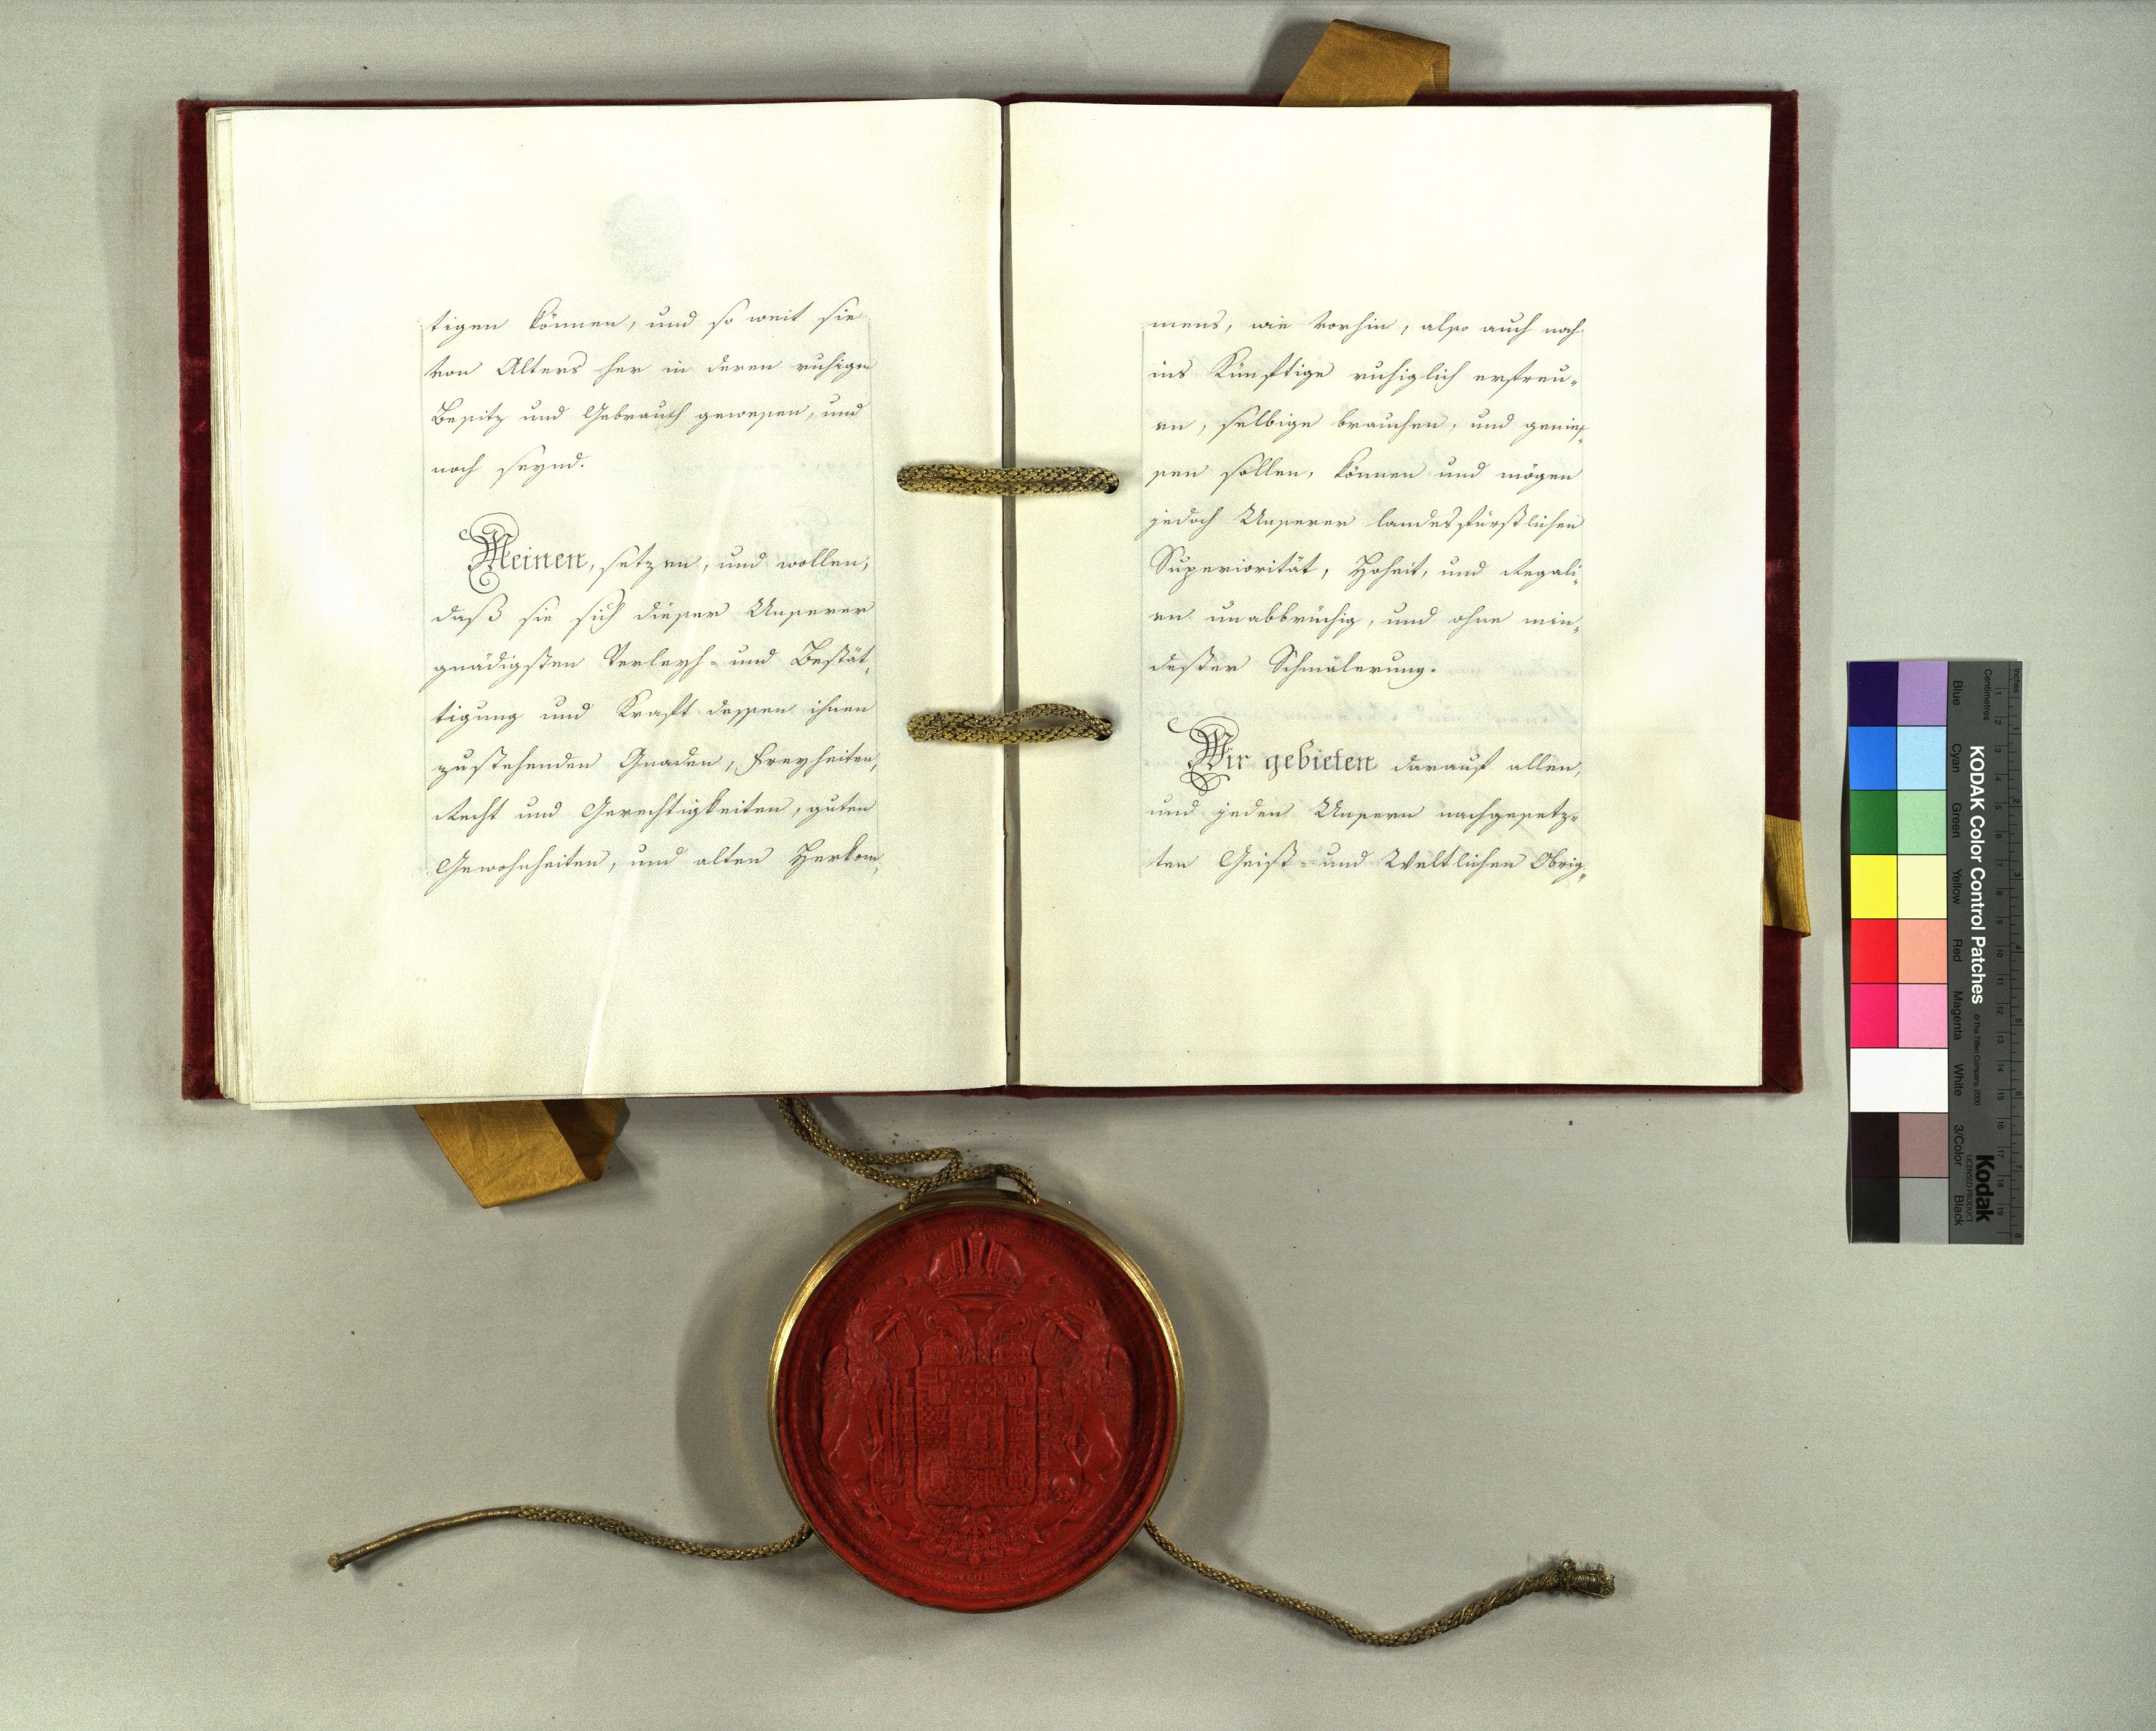 tigen können, und so weit sie
von Alters her in deren ruhigen
Besitz und Gebrauch gewesen, und
noch seynd.
Meinen, setzen, und wollen,
daß sie sich dieser Unserer
gnädigsten Verleyh- und Bestät-
tigung und Kraft dessen ihnen
zustehenden Gnaden, Freyheiten,
Recht und Gerechtigkeiten, guten
Gewohnheiten, und alten Herkom-
mens, wie vorhin, also auch noch
ins Künftige ruhiglich erfreu-
en, selbige brauchen, und genies-
sen sollen, können und mögen
jedoch Unserer landesfürstlichen
Superiorität, Hoheit, und Regali-
en unabbrüchig, und ohne min-
dester Schmälerung.
Wir gebieten darauf allen,
und jeden Unsern nachgesetz-
ten Geist- und Weltlichen Obrig-
KODAK Color Control Patches
© The Tiffen Company, 2000
Kodak
LICENSED PRODUCT
Inches
Centimetres
1 2 3 4 5 6 7 8
1 2 3 4 5 6 7 8 9 10 11 12 13 14 15 16 17 18 19
Blue
Cyan
Green
Yellow
Red
Magenta
White
3/Color
Black